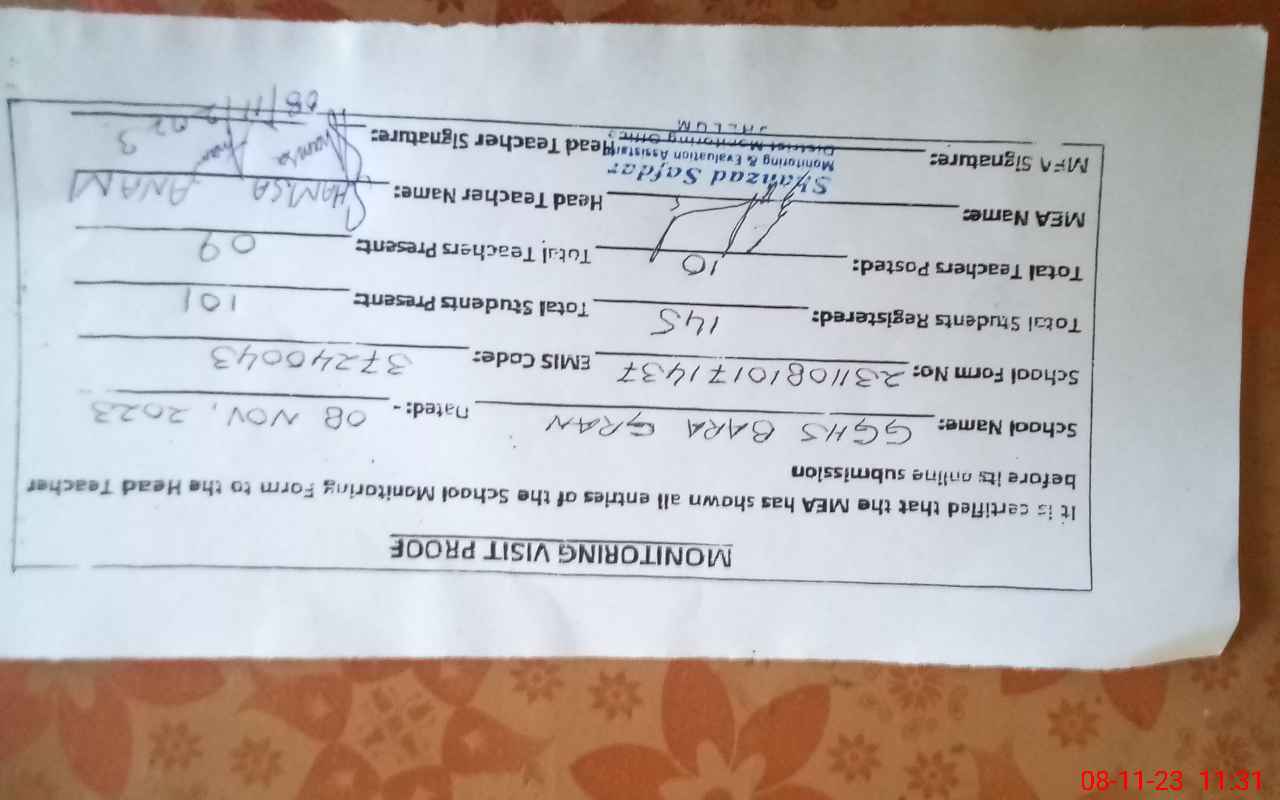 MONITORING VISIT PROOF
It is certified that the MEA has shown all entries of the School Monitoring Form to the Head Teacher
before its online submission
School Name: GGHS BARA GRAN Dated:- 08 NOV, 2023
School Form No: 23110810171437 EMIS Code: 37240043
Total Students Registered: 145 Total Students Present: 101
Total Teachers Posted: 10 Total Teachers Present: 09
MEA Name: Head Teacher Name: SHAMSA ANAM
Shahzad Safdar
Monitoring & Evaluation Assistant
MEA Signature: Head Teacher Signature:
District Monitoring Office
JHELUM
08/11/2023
08-11-23 11:31